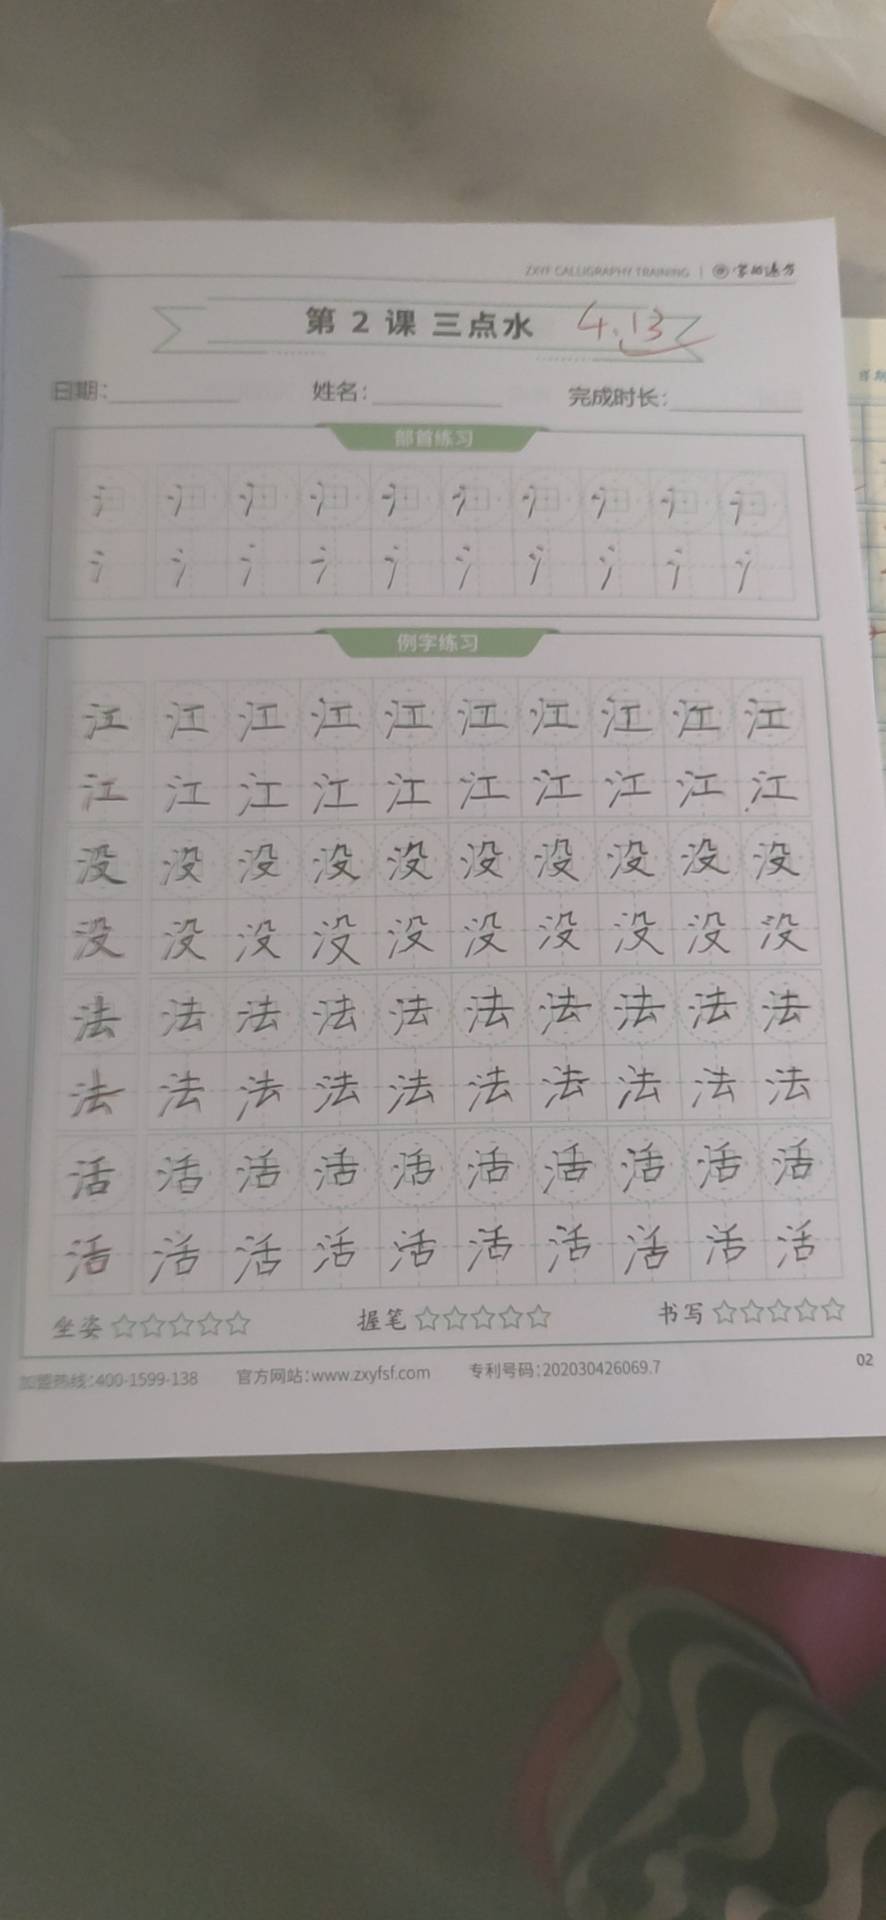 ZXYF CALLIGRAPHY TRAINING
第 2 课 三点水 4.13
日期： 姓名： 完成时长：
部首练习
氵 氵 氵 氵 氵 氵 氵 氵 氵 氵
氵 氵 氵 氵 氵 氵 氵 氵 氵 氵
例字练习
江 江 江 江 江 江 江 江 江 江
江 江 江 江 江 江 江 江 江 江
没 没 没 没 没 没 没 没 没 没
没 没 没 没 没 没 没 没 没 没
法 法 法 法 法 法 法 法 法 法
法 法 法 法 法 法 法 法 法 法
活 活 活 活 活 活 活 活 活 活
活 活 活 活 活 活 活 活 活 活
坐姿☆☆☆☆☆ 握笔☆☆☆☆☆ 书写☆☆☆☆☆
加盟热线：400-1599-138 官方网站：www.zxyfsf.com 专利号码：202030426069.7 02